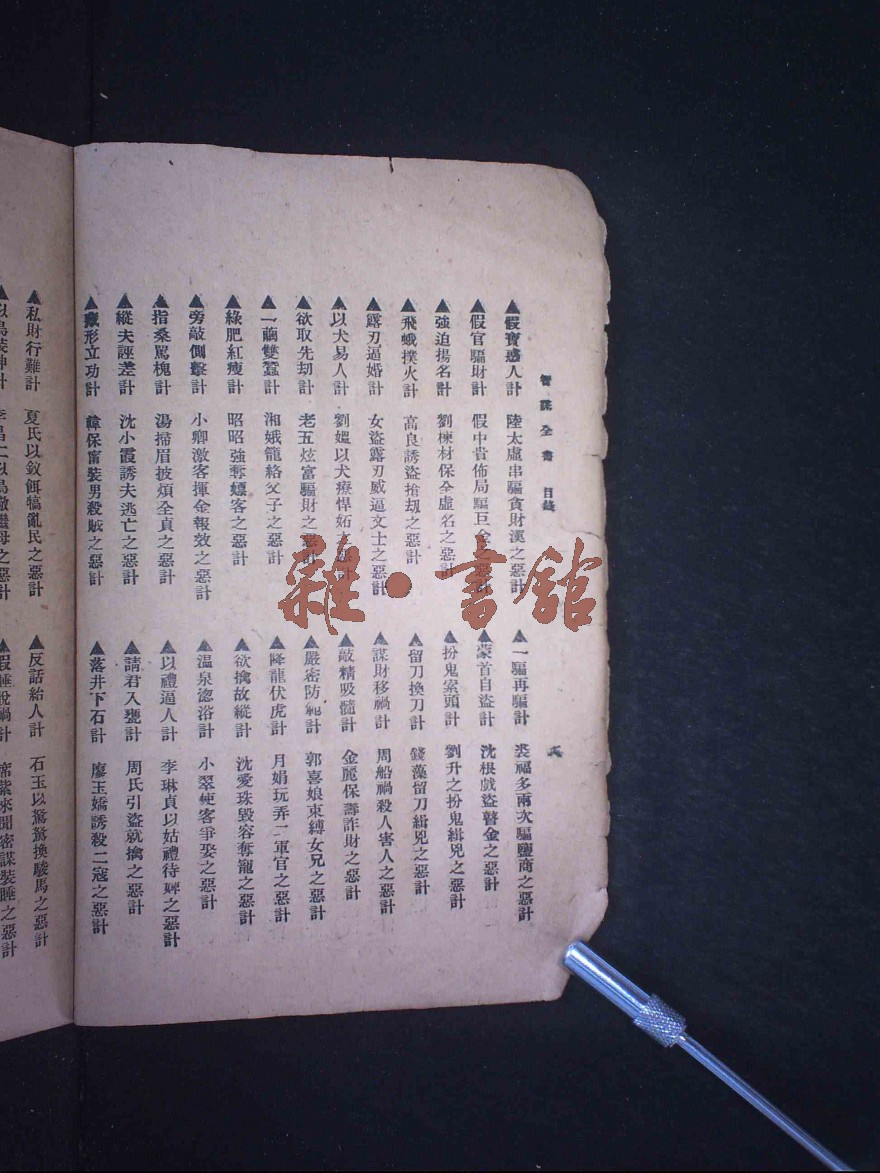 智謀全書 目錄
▲假寶惑人計 陸太虛串騙貪財漢之惡計
▲假官騙財計 假中貴佈局騙巨金之惡計
▲強迫揚名計 劉棟材保全虛名之惡計
▲飛蛾撲火計 高良誘盜搶刧之惡計
▲露刃逼婚計 女盜露刃威逼文士之惡計
▲以犬易人計 劉媼以犬療悍妬之惡計
▲欲取先刧計 老五炫富騙財之惡計
▲一繭雙蠶計 湘娥籠絡父子之惡計
▲綠肥紅瘦計 昭昭強奪嫖客之惡計
▲旁敲側擊計 小卿激客揮金報效之惡計
▲指桑罵槐計 湯掃眉披頰全貞之惡計
▲縱夫誣差計 沈小霞誘夫逃亡之惡計
▲形立功計 韓保甯裝男殺賊之惡計
▲一騙再騙計 裘福多兩次騙鹽商之惡計
▲蒙首自盜計 沈根戲盜瞽金之惡計
▲扮鬼索頭計 劉升之扮鬼緝兇之惡計
▲留刀換刀計 錢藻留刀緝兇之惡計
▲謀財移禍計 周船禍殺人害人之惡計
▲敲精吸髓計 金麗保壽詐財之惡計
▲嚴密防範計 郭喜娘束縛女兄之惡計
▲降龍伏虎計 月娟玩弄二軍官之惡計
▲欲擒故縱計 沈愛珠毀容奪寵之惡計
▲溫泉浴計 小翠使客爭娶之惡計
▲以禮逼人計 李琳貞以姑禮待婢之惡計
▲請君入甕計 周氏引盜就擒之惡計
▲落井下石計 廖玉嬌誘殺二寇之惡計
八
▲私財行難計 夏氏以釵餌犒亂民之惡計
▲反話紿人計 石玉以駑換駿馬之惡計
以鳥裝神計 李昌二以鳥繼母之惡計
假睡稅禍計 席紫來聞密謀裝睡之惡計
雜·書館